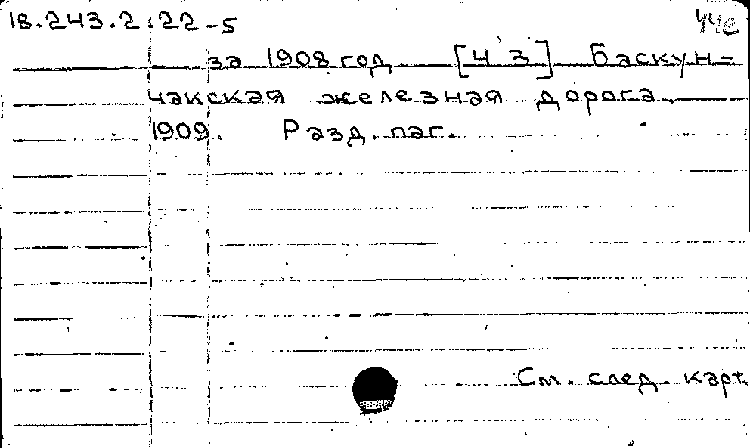 18.243.2.22-5
за 1908 год [Ч 3] Баскун-
чакская железная дорога.
1909. Разд. паг.
См. след. карт.